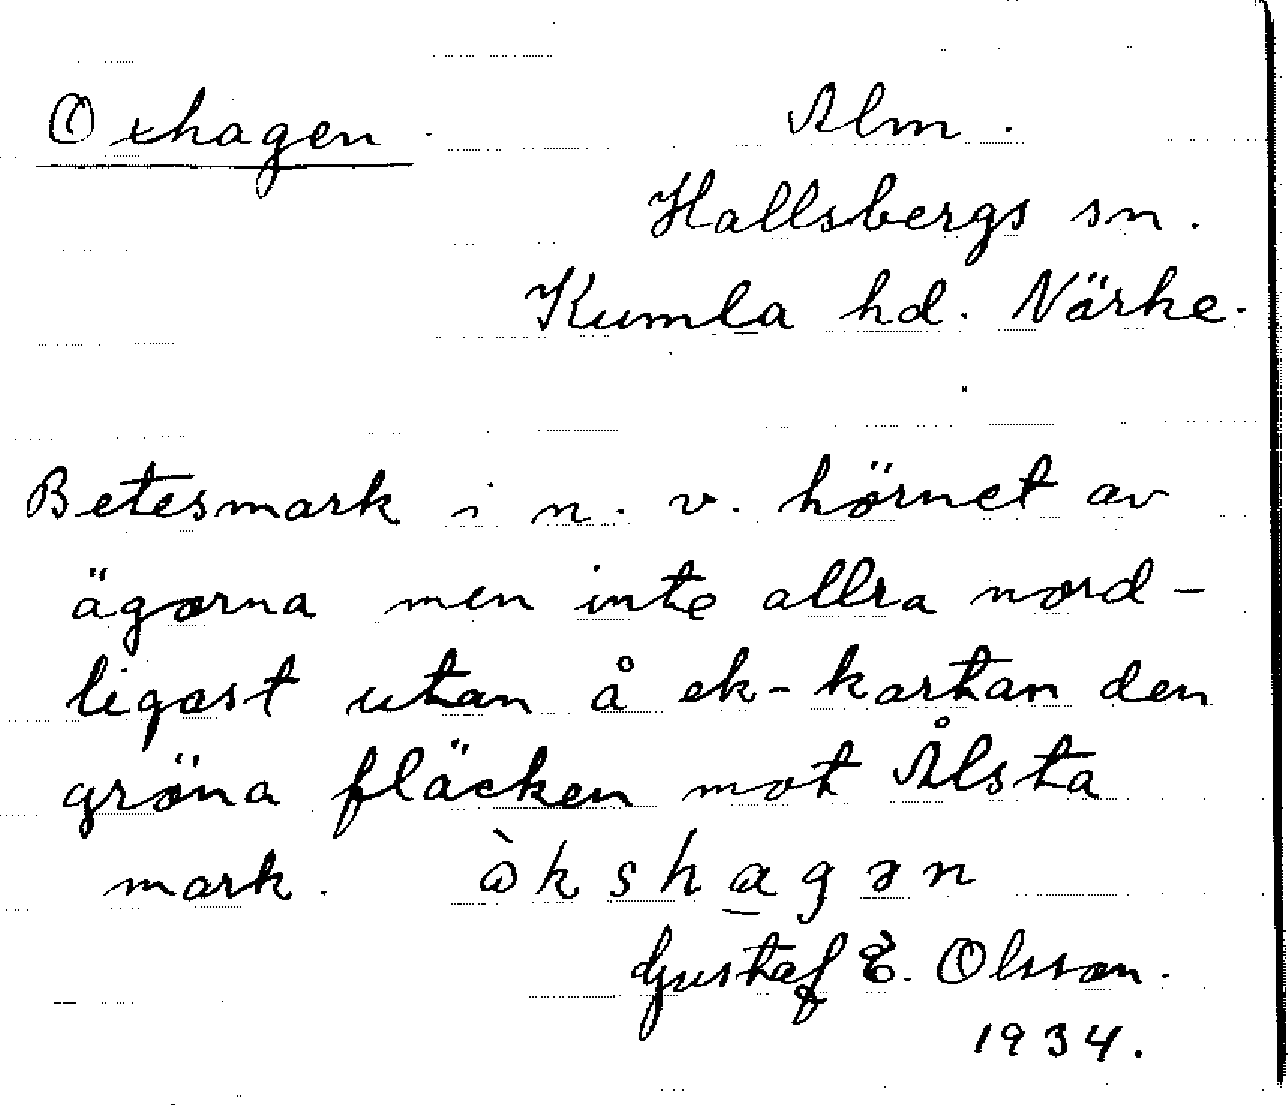 Oxhagen.
Alm.
Hallsbergs sn.
Kumla hd. Närke.
Betesmark i n. v. hörnet av
ägorna men inte allra nord-
ligast utan å ek-kartan den
gröna fläcken mot Ålsta
mark. òkshagən
Gustaf E. Olsson.
1934.